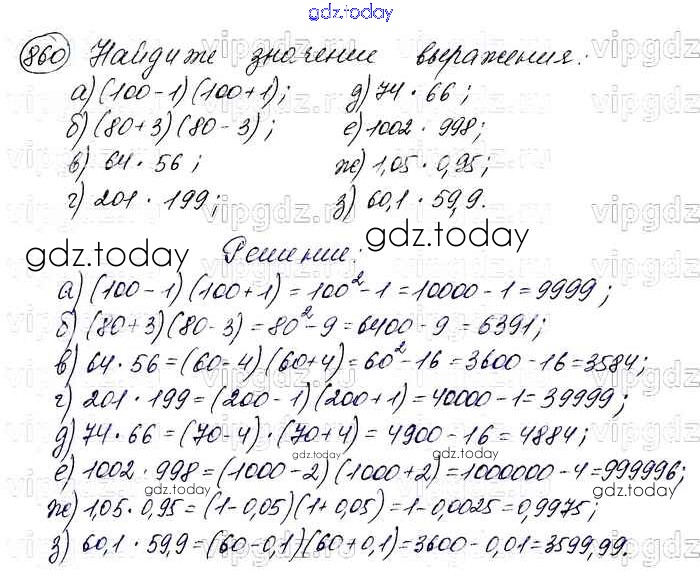 gdz.today
860 Найдите значение выражения:
а) (100-1)(100+1); д) 74 · 66;
б) (80+3)(80-3); е) 1002 · 998;
в) 64 · 56; ж) 1,05 · 0,95;
г) 201 · 199; з) 60,1 · 59,9.
gdz.today gdz.today
Решение:
а) (100-1)(100+1)=100²-1=10000-1=9999;
б) (80+3)(80-3)=80²-9=6400-9=6391;
в) 64·56=(60-4)(60+4)=60²-16=3600-16=3584;
г) 201·199=(200-1)(200+1)=40000-1=39999;
д) 74·66=(70-4)·(70+4)=4900-16=4884;
е) 1002·998=(1000-2)(1000+2)=1000000-4=999996;
gdz.today gdz.today
ж) 1,05·0,95=(1-0,05)(1+0,05)=1-0,0025=0,9975;
з) 60,1·59,9=(60-0,1)(60+0,1)=3600-0,01=3599,99.